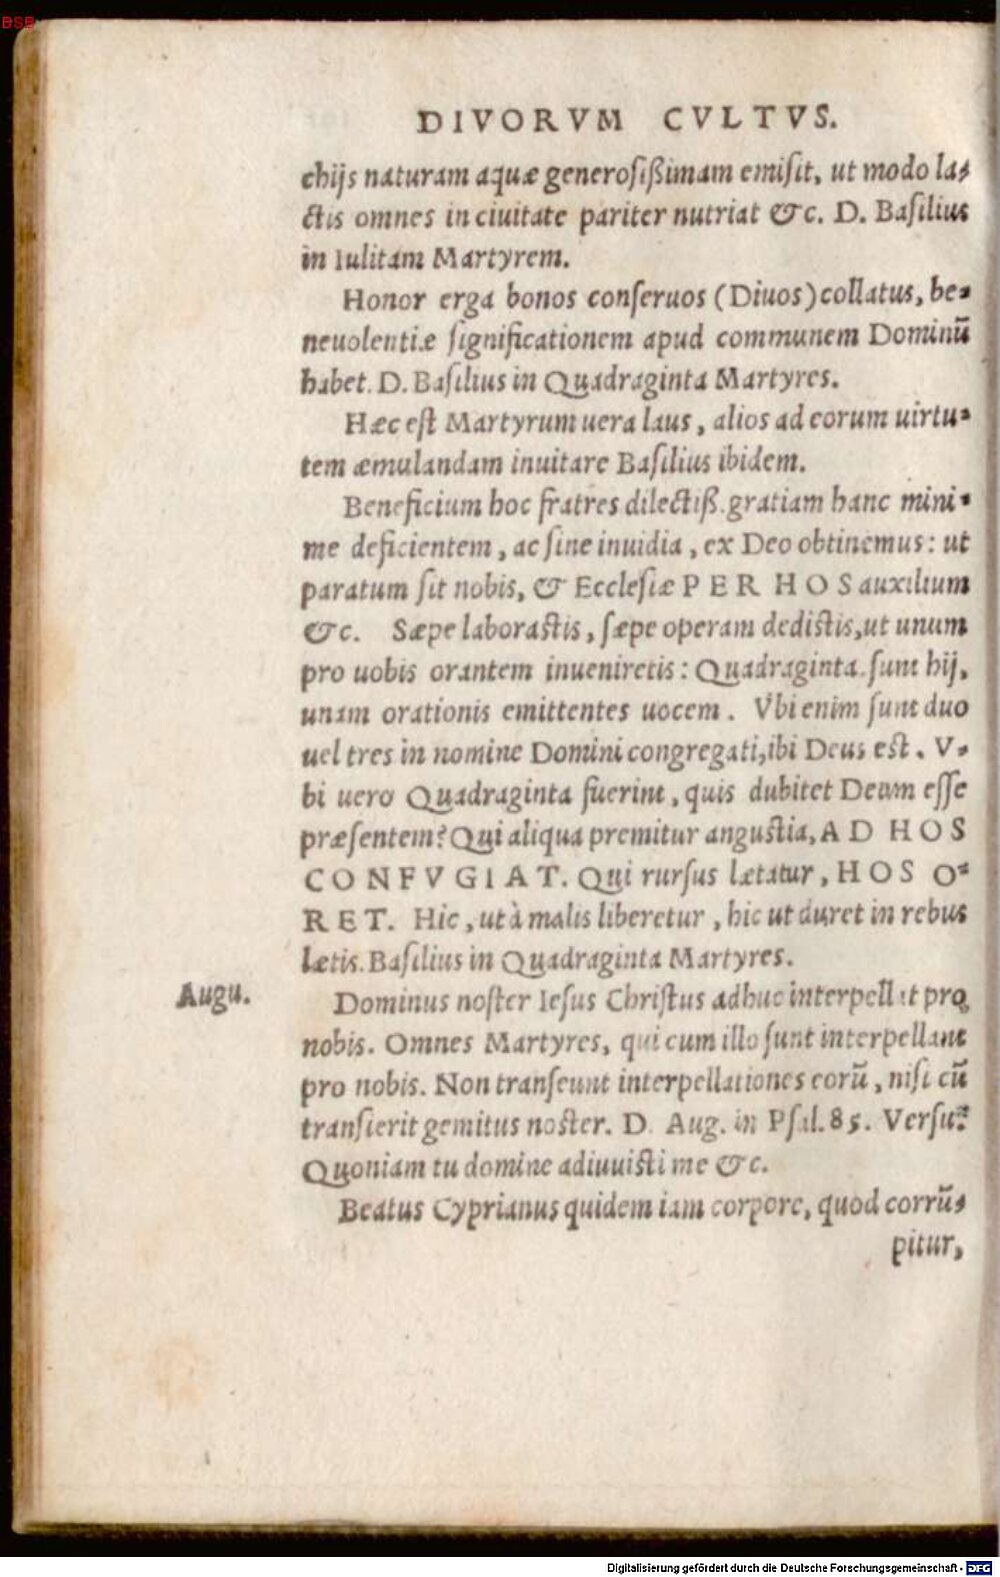 BSB
DIVORVM CVLTVS.
chijs naturam aquæ generosißimam emisit, ut modo la-
ctis omnes in ciuitate pariter nutriat &c. D. Basilius
in Iulitam Martyrem.
Honor erga bonos conseruos (Diuos) collatus, be-
neuolentiæ significationem apud communem Dominū
habet. D. Basilius in Quadraginta Martyres.
Hæc est Martyrum uera laus, alios ad eorum uirtu-
tem æmulandam inuitare Basilius ibidem.
Beneficium hoc fratres dilectiß. gratiam hanc mini-
me deficientem, ac sine inuidia, ex Deo obtinemus: ut
paratum sit nobis, & Ecclesiæ PER HOS auxilium
&c. Sæpe laborastis, sæpe operam dedistis, ut unum
pro uobis orantem inueniretis: Quadraginta sunt hij,
unam orationis emittentes uocem. Vbi enim sunt duo
uel tres in nomine Domini congregati, ibi Deus est. V-
bi uero Quadraginta fuerint, quis dubitet Deum esse
præsentem? Qui aliqua premitur angustia, AD HOS
CONFVGIAT. Qui rursus lætatur, HOS O-
RET. Hic, ut à malis liberetur, hic ut duret in rebus
lætis. Basilius in Quadraginta Martyres.
Augu.
Dominus noster Iesus Christus adhuc interpellat pro
nobis. Omnes Martyres, qui cum illo sunt interpellant
pro nobis. Non transeunt interpellationes eorū, nisi cū
transierit gemitus noster. D. Aug. in Psal. 85. Versu:
Quoniam tu domine adiuuisti me &c.
Beatus Cyprianus quidem iam corpore, quod corrū-
pitur,
Digitalisierung gefördert durch die Deutsche Forschungsgemeinschaft - DFG